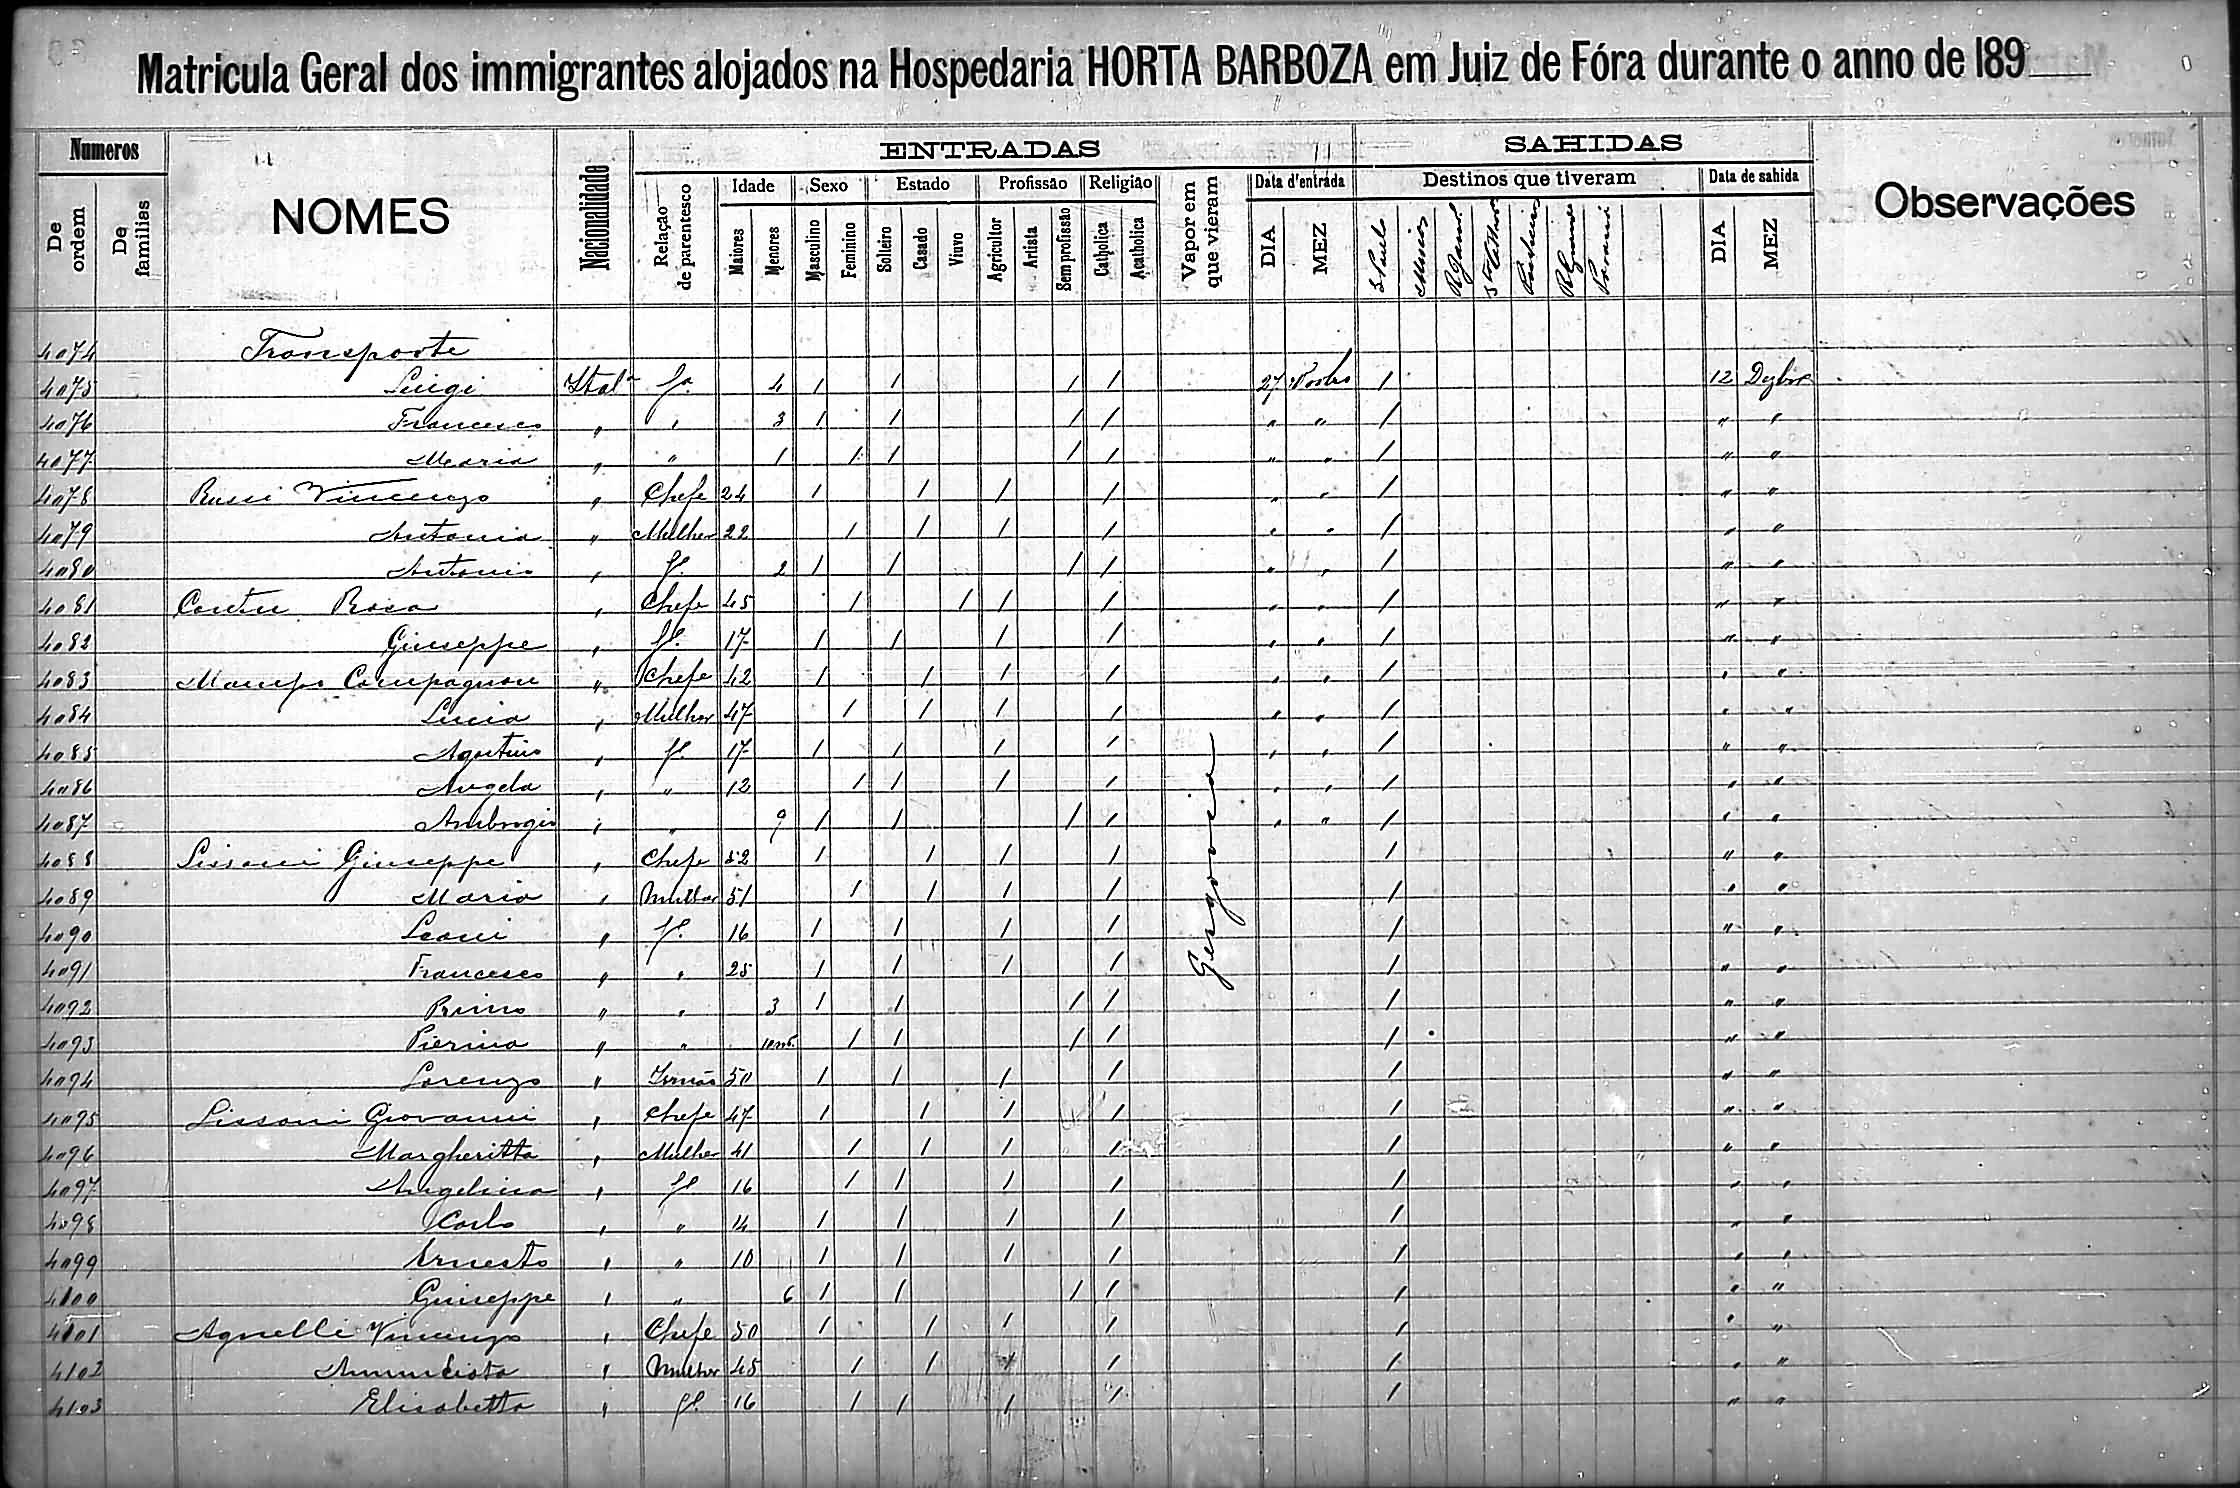 Matricula Geral dos immigrantes alojados na Hospedaria HORTA BARBOZA em Juiz de Fóra durante o anno de 189
Numeros NOMES Nacionalidade ENTRADAS SAHIDAS Observações
De ordem De familias Relação de parentesco Idade Sexo Estado Profissão Religião Vapor em que vieram Data d'entrada Destinos que tiveram Data de sahida
Maiores Menores Masculino Feminino Solteiro Casado Viuvo Agricultor Artista Sem profissão Catholica Acatholica DIA MEZ S Paulo DIA MEZ
4074 Transporte
4075 Luigi Ital.ª fº 4 1 1 1 1 27 Novbro 1 12 Dezbro
4076 Francesco " " 3 1 1 1 1 " " 1 " "
4077 Maria " " 1 1 1 1 1 " " 1 " "
4078 Vincenzo " Chefe 24 1 1 1 1 " " 1 " "
4079 Antonia " Mulher 22 1 1 1 1 " " 1 " "
4080 Antonio " fº 2 1 1 1 1 " " 1 " "
4081 Rosa " Chefe 45 1 1 1 1 " " 1 " "
4082 Giuseppe " fº 17 1 1 1 1 " " 1 " "
4083 " Chefe 42 1 1 1 1 " " 1 " "
4084 Lucia " Mulher 47 1 1 1 1 " " 1 " "
4085 Agostino " fº 17 1 1 1 1 " " 1 " "
4086 Angela " " 12 1 1 1 1 " " 1 " "
4087 Ambrogio " " 9 1 1 1 1 " " 1 " "
4088 Lissoni Giuseppe " Chefe 52 1 1 1 1 1 " "
4089 Maria " Mulher 51 1 1 1 1 1 " "
4090 " fº 16 1 1 1 1 1 " "
4091 Francesco " " 25 1 1 1 1 1 " "
4092 " " 3 1 1 1 1 1 " "
4093 Pierina " " 1 1 1 1 1 " "
4094 Lorenzo " Irmão 50 1 1 1 1 1 " "
4095 Lissoni Giovanni " Chefe 47 1 1 1 1 1 " "
4096 Margheritta " Mulher 41 1 1 1 1 1 " "
4097 Angelina " fº 16 1 1 1 1 1 " "
4098 Carlo " " 14 1 1 1 1 1 " "
4099 Ernesto " " 10 1 1 1 1 1 " "
4100 Giuseppe " " 6 1 1 1 1 1 " "
4101 Agnelli Vincenzo " Chefe 50 1 1 1 1 1 " "
4102 " Mulher 45 1 1 1 1 1 " "
4103 Elisabetta " fº 16 1 1 1 1 1 " "